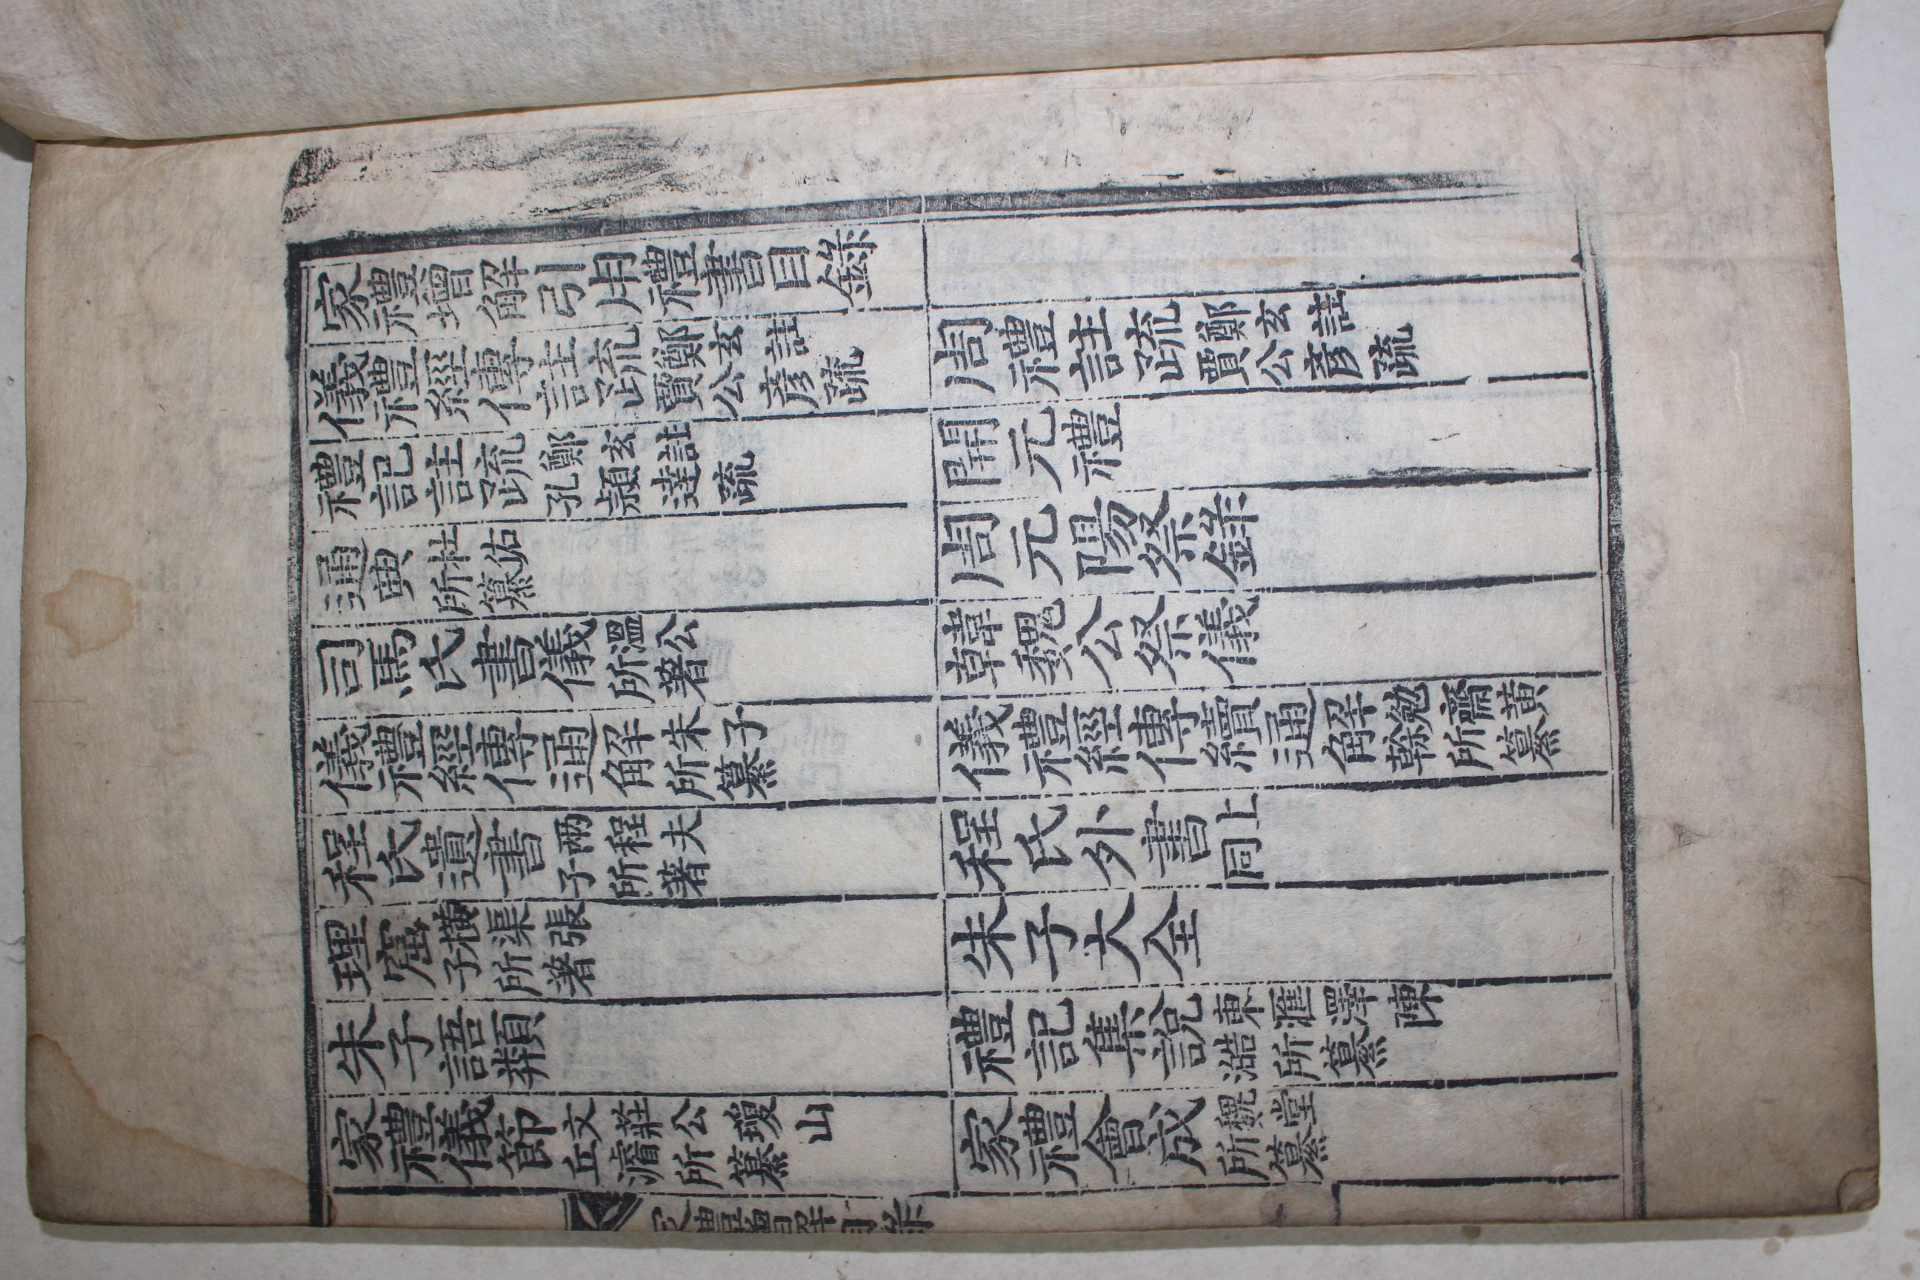 家禮增解引用禮書目錄
儀禮經傳註䟽 鄭玄註賈公彥疏 周禮註䟽 鄭玄註賈公彥疏
禮記註䟽 鄭玄註孔穎達疏 開元禮
通典 杜佑所纂 周元陽祭錄
司馬氏書儀 溫公所著 韓魏公祭儀
儀禮經傳通解 朱子所纂 儀禮經傳續通解 勉齋黃榦所纂
程氏遺書 兩程夫子所著 程氏外書 同上
理窟 橫渠張子所著 朱子大全
朱子語類 禮記集說 東滙澤陳澔所纂
家禮儀節 文莊公瓊山丘濬所纂 家禮會成 魏堂所纂
家禮增解目錄